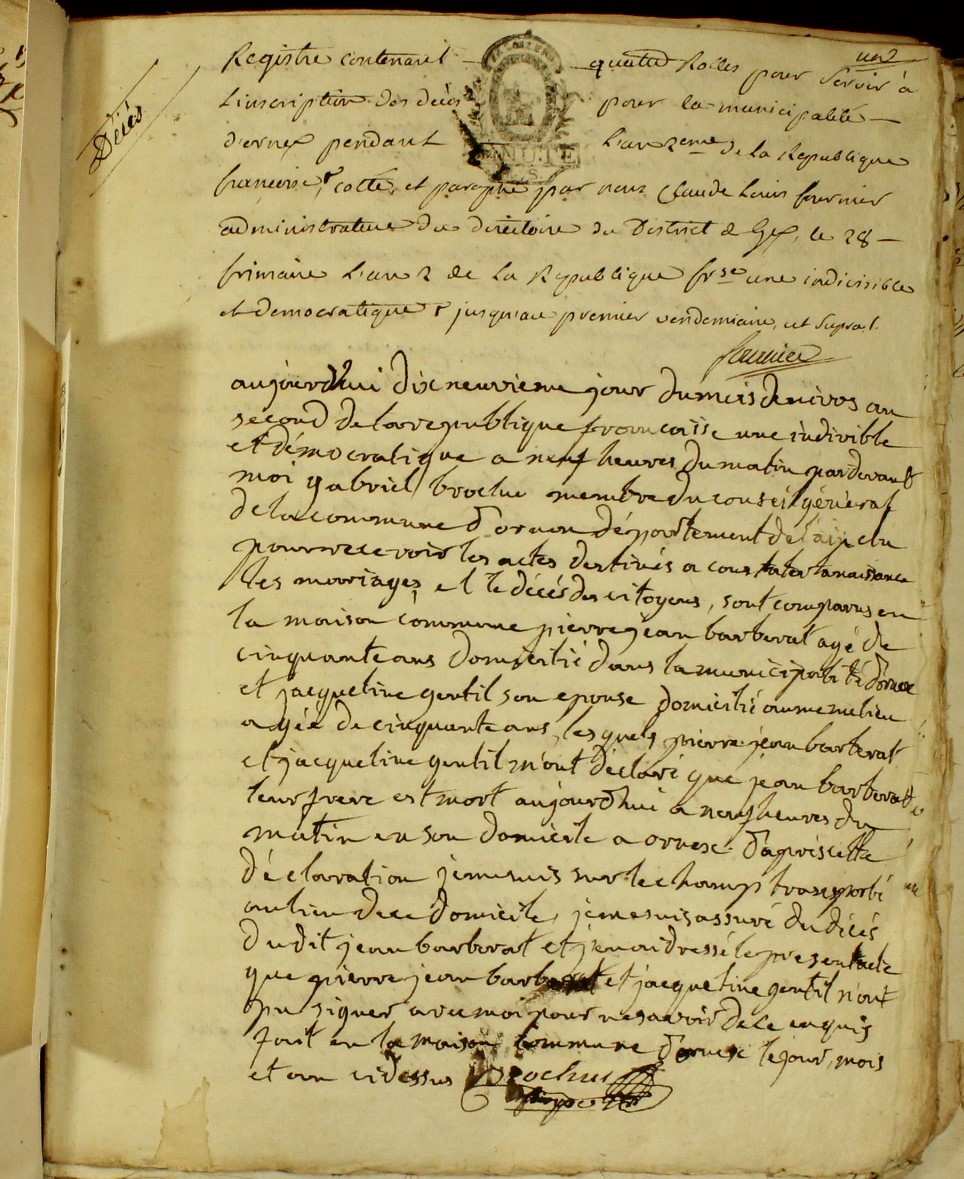 un
Décès
Registre contenant quatre Roles pour Servir à
L'inscription des décès pour la municipalité
d'ornex pendant L'an 2eme de la Republique
francoise, cotté, et paraphé par nous Claude Louis fournier
administrateur du directoire du District de Gex, le 28
frimaire L'an 2 de La Republique frse une indivisible
et democratique & jusqu'au premier vendemiaire, ut Supra.
fournier
MINUTE
aujourd'hui dix neuvieme jour du mois de nivos an
second de la republique francoisse une indivible
et démocratique a neuf heures du matin par devant
moi gabriel brochu membre du conseil général
de la commune d'ornex département de l'ain elu
pour recevoir les actes destinés a constater la naissance
les marriages, et le décés des citoyens, sont comparus en
la maison commune pierre jean barberat agé de
cinquante ans domicilié dans la municipalité d'ornex
et jacqueline gentil son epouse domicilié au meme lieu
agée de cinquante ans, les quels pierre jean barberat
et jacqueline gentil m'ont déclaré que jean barberat
leur frere est mort aujourd'hui a neuf heures du
matin en son domicile a ornex. d'aprés cette
déclaration je me suis sur le champ transporté
au lieu de ce domicile, je me suis assuré du décés
du dit jean barberat et j'en ai dressé le present acte
que pierre jean barberat et jacqueline gentil n'ont
pu signer avec moi pour ne savoir de ce enquis
fait en la maison commune d'ornex le jour, mois
et an ci dessus Brochu